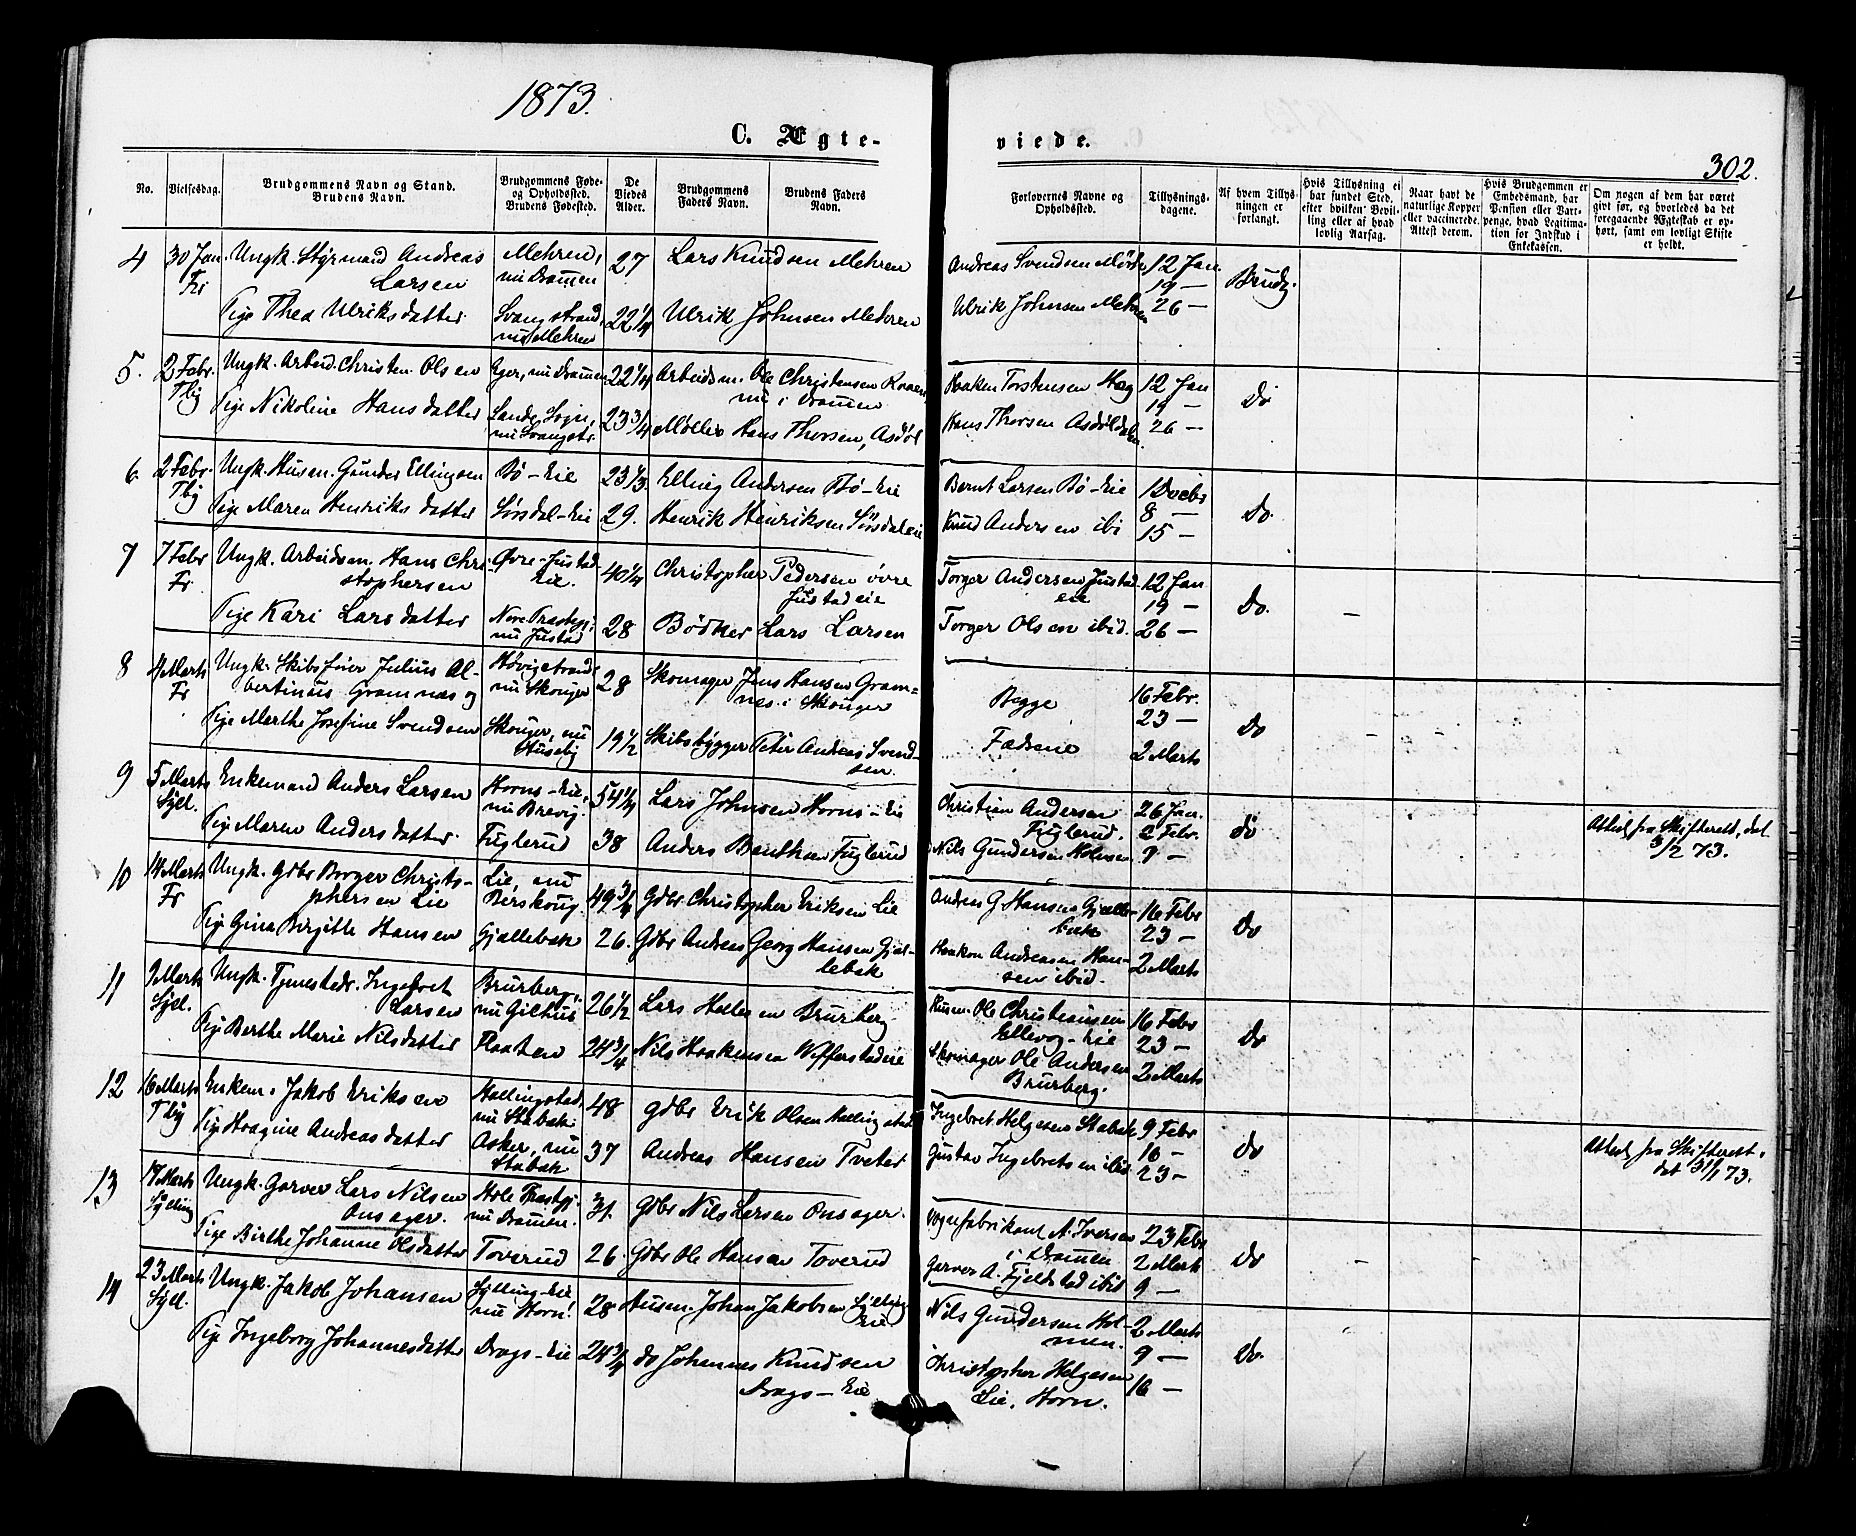 1873.
C. Ægte-
viede.
302.
No.
Vielsesdag.
Brudgommens Navn og Stand.
Brudens Navn.
Brudgommens Føde-
og Opholdssted.
Brudens Fødested.
De
Viedes
Alder.
Brudgommens
Faders Navn.
Brudens Faders
Navn.
Forlovernes Navne og
Opholdssted.
Tillysnings-
dagene.
Af hvem Tillys-
ningen er
forlangt.
Hvis Tillysning ei
har fundet Sted,
efter hvilken Bevil-
ling eller af hvad
lovlig Aarsag.
Naar havt de
naturlige Kopper
eller vaccinerede.
Attest derom.
Hvis Brudgommen er
Embedsmand, har
Pension eller Vart-
penge, hvad Legitima-
tion for Indskud i
Enkekassen.
Om nogen af dem har været
gift før, og hvorledes da det
foregaaende Ægteskab er op-
hørt, samt om lovligt Skifte
er holdt.
4 30 Jan. Ungk. Styrmand Andreas Mehren, 27 Lars Knudsen Mehren Andreas Svendsen 12 Jan. Brudg.
Fr Larsen nu Dramen 19 —
Pige Thea Ulriksdatter Svangstrand, 22 1/4 Ulrik Johnsen Mehren Ulrik Johnsen Mehren 26 —
nu Mehren
5. 2 Febr. Ungk. Arbeid. Christen Olsen Eger, nu Dramen 22 1/4 Arbeidsm. Ole Christensen Haaken Torstensen Hæg 12 Jan Do
Tbg nu i Dramen 19 —
Pige Nikoline Hansdatter Sande Sogn, 23 3/4 Møller Hans Thorsen, Asdøl Hans Thorsen Asdøldalen 26 —
nu Svangstr.
6. 2 Febr. Ungk. Husm. Gunder Ellingsen Bø-Eie 23 1/3. Elling Andersen Bø-Eie Bernt Larsen Bø-Eie 1 Decbr Do.
Tbg 8 —
Pige Maren Henriksdatter Sørsdal-Eie 29. Henrik Henriksen Sørsdaleie Knud Andersen ibi 15 —
7 7 Febr Ungk. Arbeidsm. Hans Chri- Øvre-Justad 40 1/4 Christopher Pedersen øvre Torger Andersen Justad 12 Jan Do. —
Fr. stophersen Eie. Justadeie eie 19 —
Pige Kari Larsdatter Nore Præstegj. 28 Bødker Lars Larsen Torger Olsen ibid. 26 —
nu Justad
8 4 Marts Ungk. Skibsfører Julius Al- Høvigstrand, 28 Skomager Jens Hansen Gram- Begge 16 Febr. Do
Fr bertinus Gramnæs og nu Skouger næs i Skouger 23 —
Pige Marthe Josefine Svendsen Skouger, nu 19 1/2 Skibsbygger Peter Andreas Svend- Fædrene 2 Marts
Huseby sen
9 5 Marts Enkemand Anders Larsen Horns-Eie, 54 1/4 Lars Johnsen Horns-Eie Christian Andersen 26 Jan. do Attest fra Skifterett, dat
Sjel. nu Brevig. Fuglerud. 2 Febr. 3/2 73.
Pige Maren Andersdatter. Fuglerud 38 Anders Fuglerud Nils Gundersen Holmen 9 —
10 14 Marts Ungk. Gdbr Borger Christo- Lie, nu 49 3/4 Gdbr Christopher Eriksen Lie Andreas G. Hansen Gjelle- 16 Febr Do
Fr phersen Lie Berskoug. bæk 23 —
Pige Gina Birgitte Hansen Gjellebæk 26. Gdbr Andreas Georg Hansen Gjel- Haakon Andreasen Han- 2 Marts
lebæk sen ibid.
11 9 Marts Ungk. Tjenestedr. Ingebret Brurberg, 26 1/2 Lars Brurberg Husm. Ole Christiansen 16 Febr Do
Sjel. Larsen nu Gilhus Ellevog-Eie 23 —
Pige Berthe Marie Nilsdatter Plaaten 24 3/4 Nils Haakensen Viffersladeie Skomager Ole Andersen 2 Marts
Brurberg.
12 16 Marts Enkem. Jakob Eriksen Hallingstad, 48 Gdbr Erik Olsen Hallingstad Ingebret Helgesen Stabæk 9 Febr Do Attest fra Skifterett.
Tbg nu Stabæk 16 — dat 31/1 73.
Pige Hragine Andreasdatter Asker, nu 37 Andreas Hansen Tveter Gustav Ingebretsen ibid 23 —
Stabæk
13 17 Marts Ungk. Garver Lars Nilsen Hole Præstgj. 31. Gdbr Nils Larsen Onsager. Vognfabrikant A. Iversen 23 Febr Do
Sylling Onsager. nu Dramen. i Dramen 2 Marts
Pige Birthe Johanne Olsdatter Toverud 26. Gdbr Ole Hansen Toverud Garver A. Fjeldstad ibid 9 —
14 23 Marts Ungk. Jakob Johansen Sylling-Eie 28 Husm. Johan Jakobsen Sylling Nils Gundersen Hol- 2 Marts Do.
Sjel. nu Horn. Eie men. 9 —
Pige Ingeborg Johannesdatter Drags-Eie 24 3/4 do Johannes Knudsen Christopher Helgesen 16 —
Drags-Eie Lie, Horn.